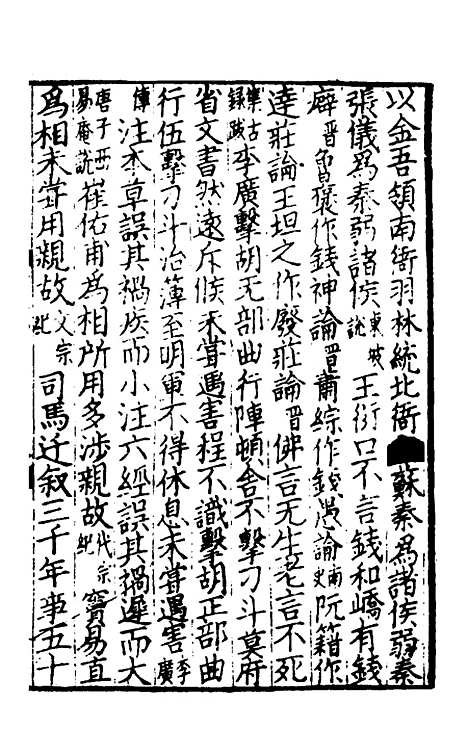 以金吾領南衙羽林統北衙　蘇秦爲諸侯弱秦
張儀爲秦弱諸侯東坡說　王衍口不言錢和嶠有錢
癖晋魯褒作錢神論晋蕭綜作錢愚論南史阮籍作
達莊論王坦之作廢莊論晋佛言无生老言不死
集古録跋李廣擊胡无部曲行陣頓舍不擊刁斗莫府
省文書然遠斥候未甞遇害程不識擊胡正部曲
行伍擊刁斗治薄至明軍不得休息未甞遇害李廣
傳　注本草誤其禍疾而小注六經誤其禍遲而大
唐子西易庵說崔佑甫爲相所用多涉親故代宗紀竇易直
爲相未甞用親故文宗紀　司馬迁叙三千年事五十